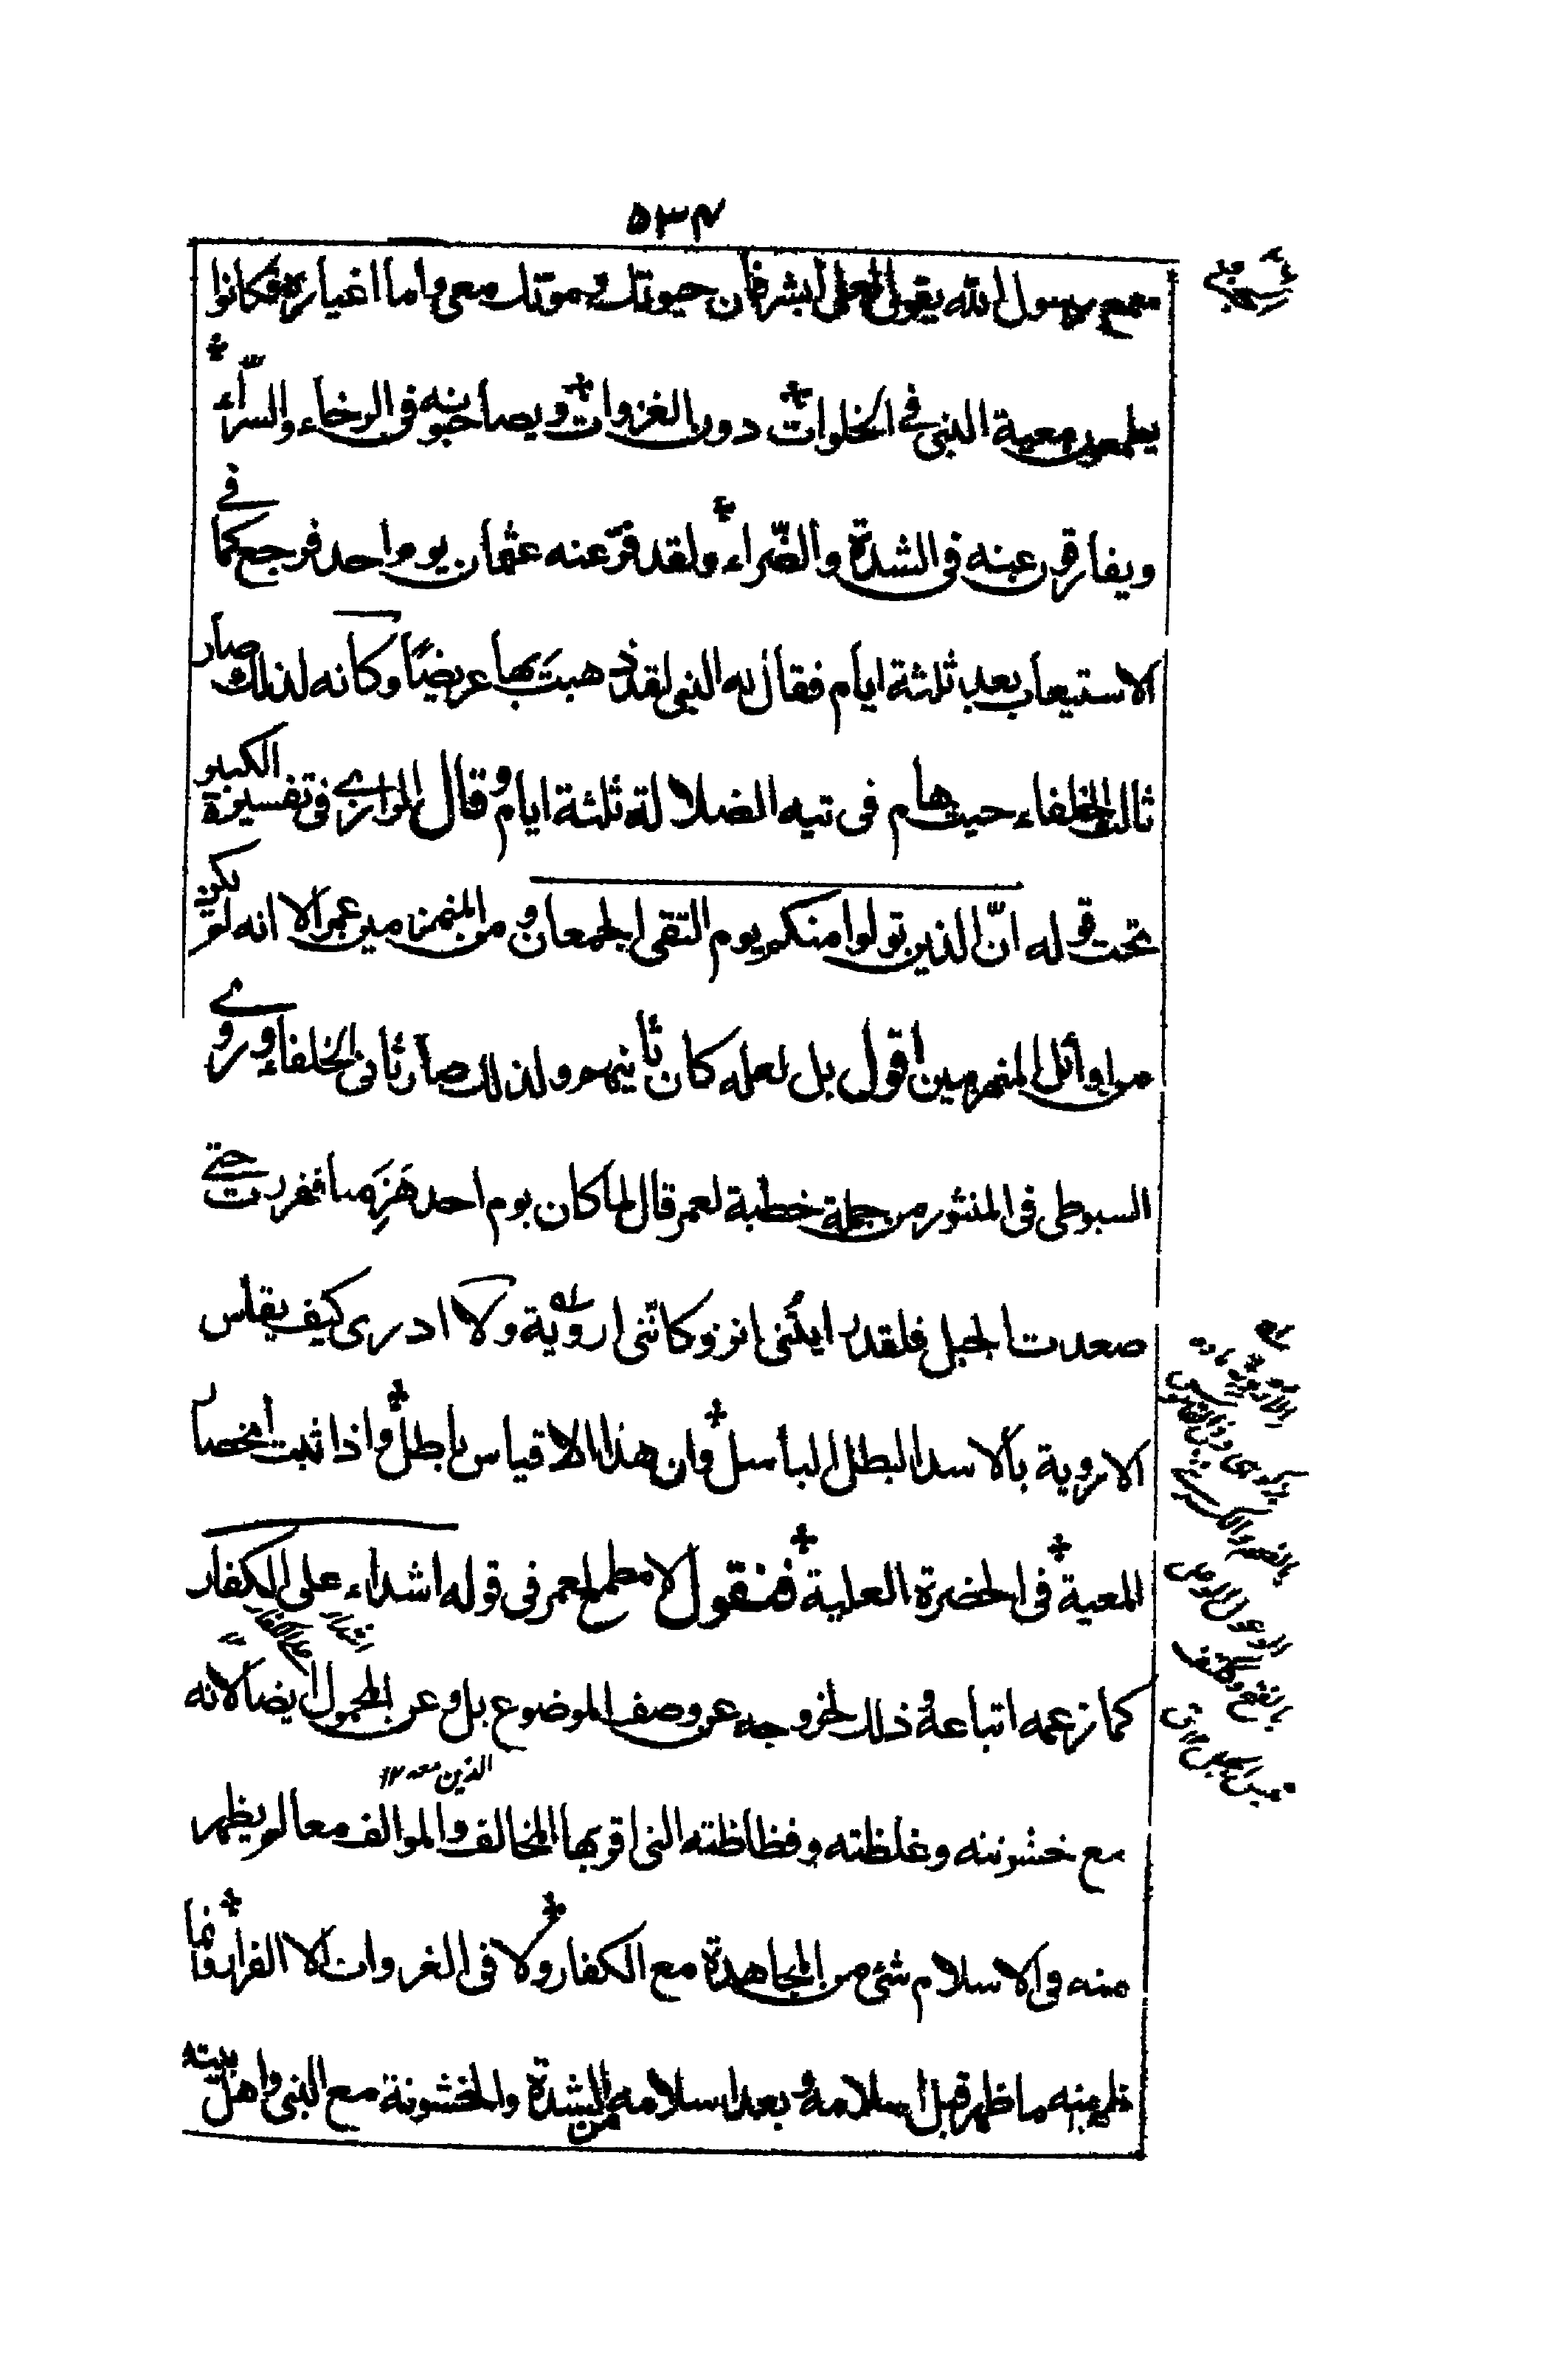 ٥٣٣
سمع رسول الله يقول لعلى ابشر فان حيوتك وموتك معى واما اغياره فكانوا
يطمعون معية النبى فى الخلوات دون الغزوات ويصاحبونه فى الرخاء والسرّاء
ويفارقون عنه فى الشدة والضّراء ولقد فرّ عنه عثمان يوم احد فرجع كما فى
الاستيعاب بعد ثلثة ايام فقال له النبى لقد ذهبت بها عريضًا وكانه لذلك صار
ثالث الخلفاء حيث هام فى تيه الضلالة ثلثة ايام وقال الرازى فى تفسيره الكبير
تحت قوله انّ الذين تولوا منكم يوم التقى الجمعان ومن المنهزمين عمر الا انه لم يكن
من اوائل المنهزمين اقول بل لعله كان ثانيهم ولذلك صار ثانى الخلفاء وروى
السيوطى فى المنثور من جملة خطبة لعمر قال لما كان يوم احد هَزِمنا ففررت حتى
صعدت الجبل فلقد رايتُنى انزو كانّنى اروية ولا ادرى كيف يقاس
الاروية بالاسد البطل الباسل وان هذا الا قياس باطل واذا ثبت اختصاص
المعية فى الحضرة العلية فنقول لا مطمع لعمر فى قوله اشداء على الكفار
كما زعمه اتباعه وذلك لخروجه عن وصف الموضوع بل وعن المحمول ايضا لانه
الذين معه ١٢
مع خشونته وغلظته وفظاظته التى اقر بها المخالف والموالف معا لم يظهر
منه فى الاسلام شئ من المجاهدة مع الكفار ولا فى الغزوات الا الفرار فما
ظهر منه ما ظهر قبل اسلامه وبعد اسلامه من الشدة والخشونة مع النبى واهل بيته